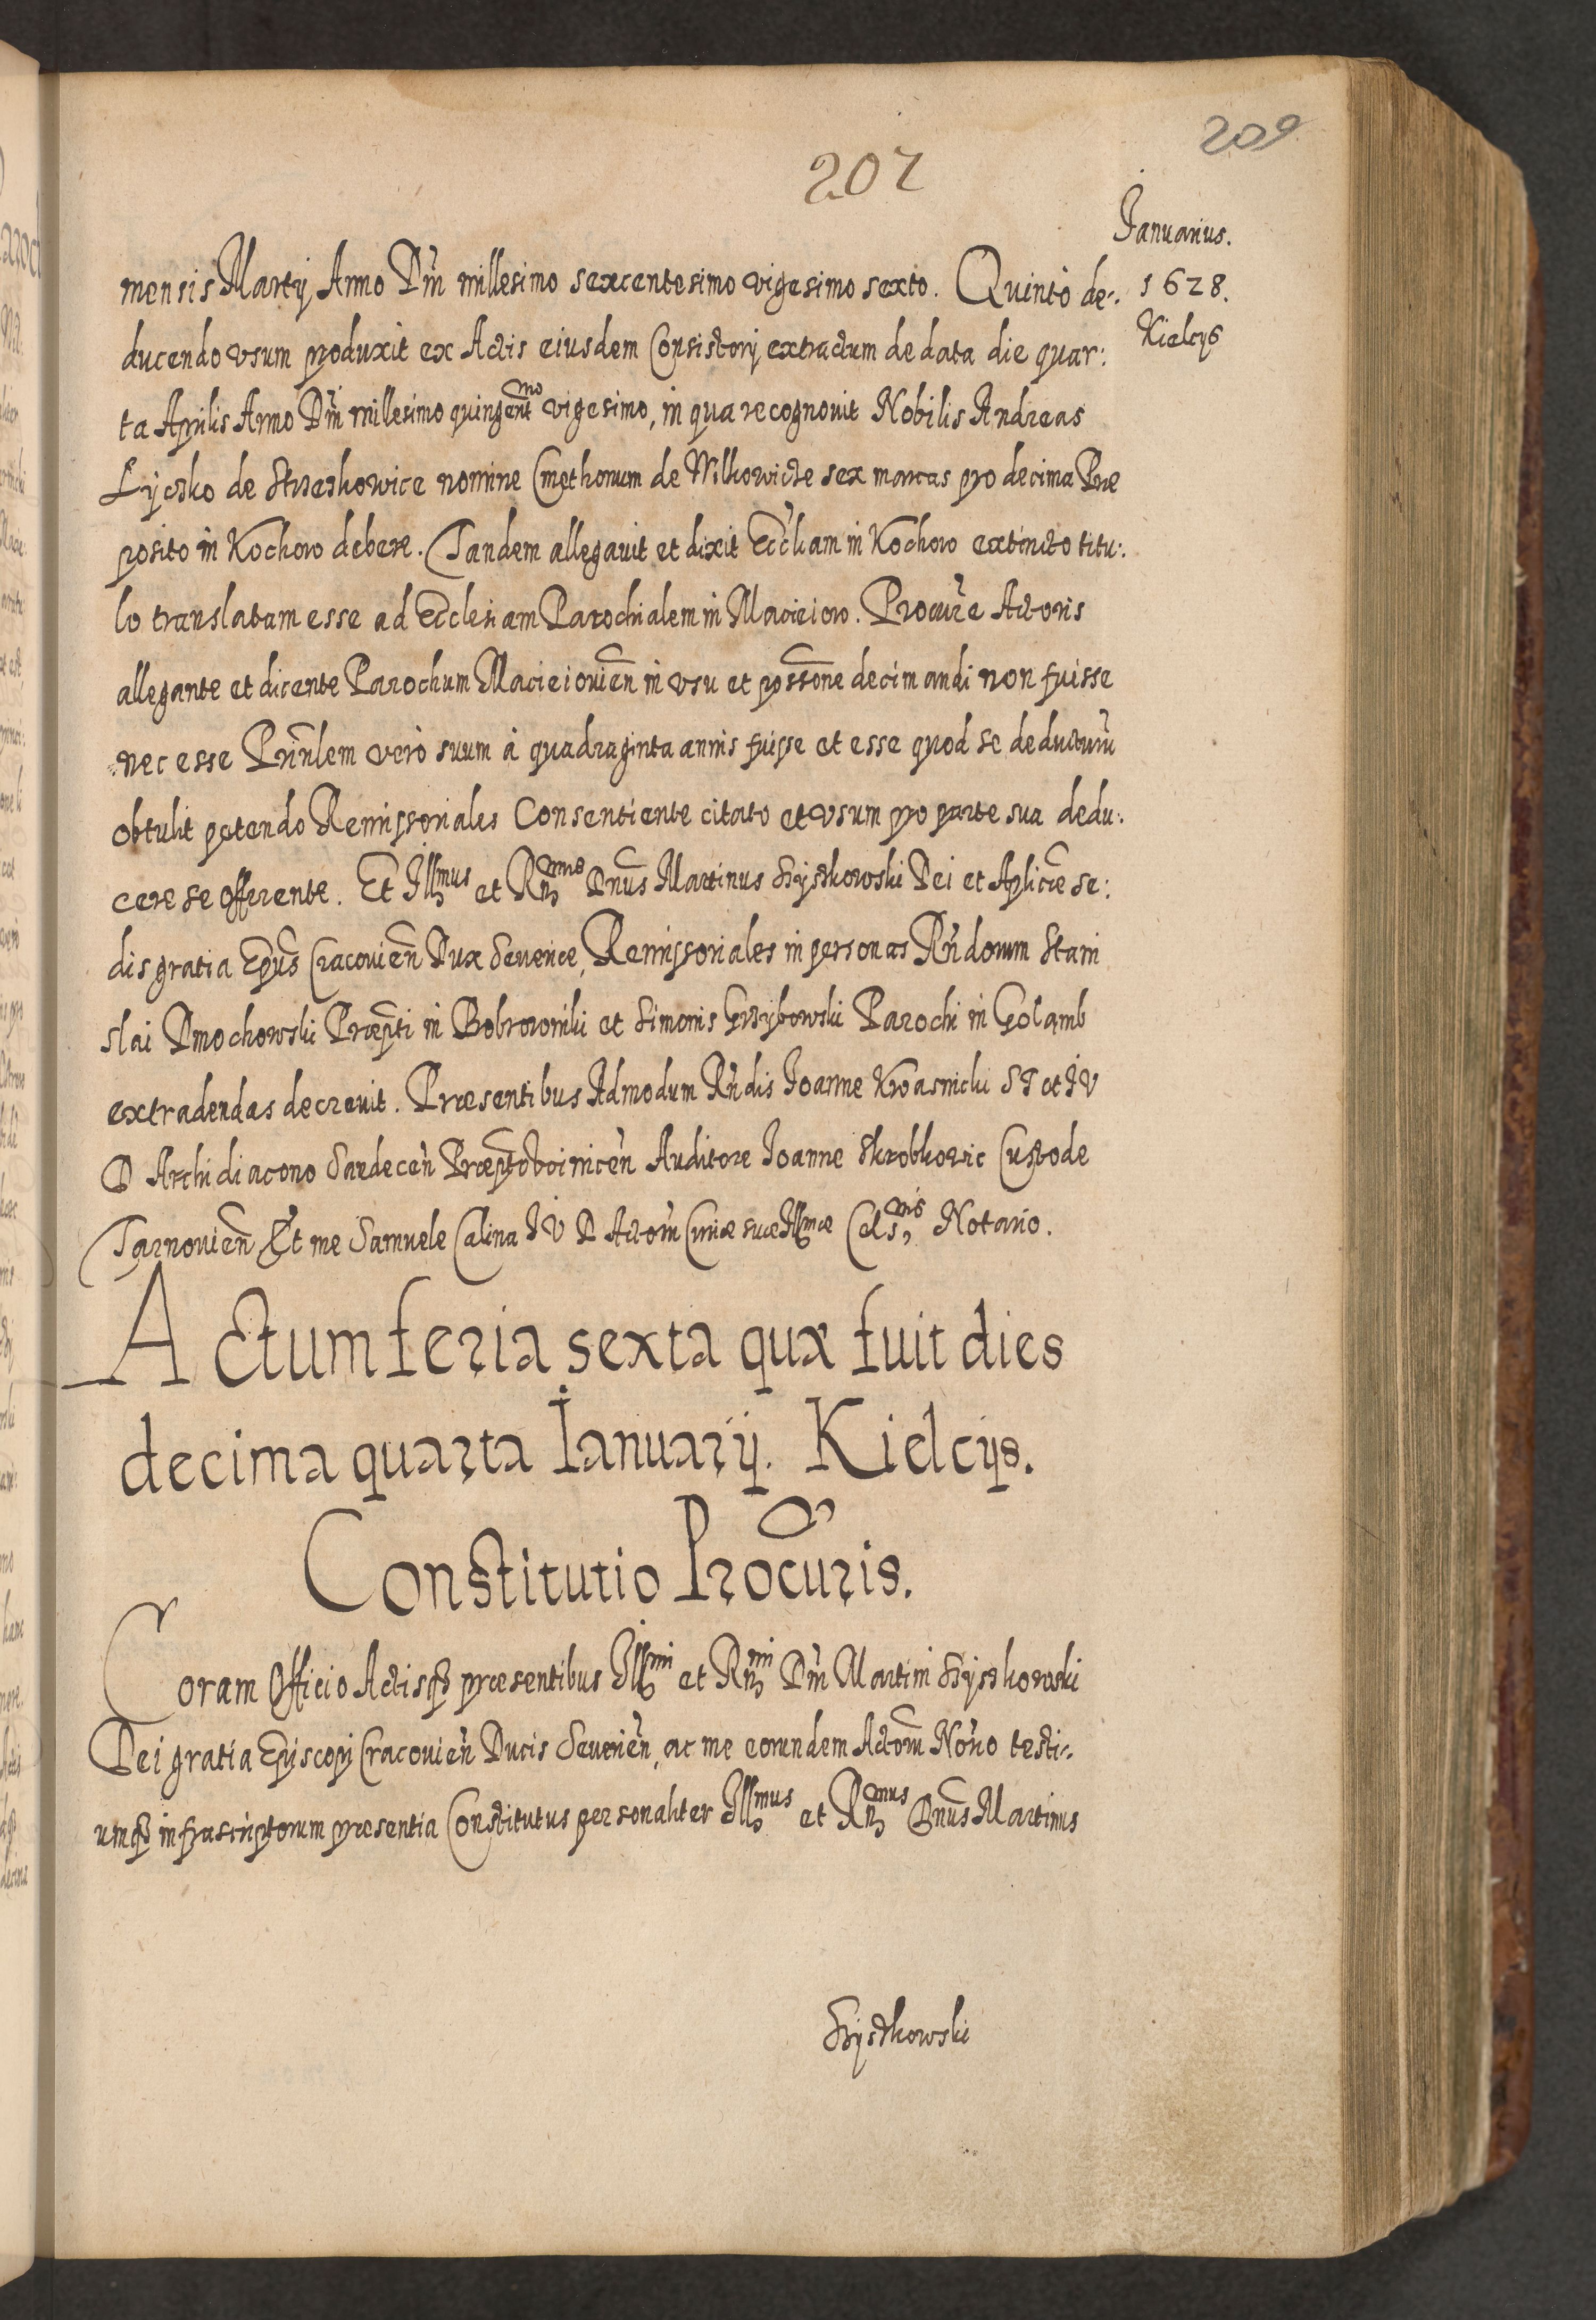 209
207
Januarius.
1628.
Kielcys
mensis Martij Anno Dni millesimo sexcentesimo vigesimo sexto. Quinto de:
ducendo vsum produxit ex Actis eiusdem Consistorij extractum de data die quar:
ta Aprilis Anno Dni millesimo quingentmo vigesimo, in qua recognouit Nobilis Andreas
Łyczko de nomine Cmethonum de Wilkowicze sex marcas pro decima Præ
posito in Kochow debere. Tandem allegauit et dixit Eccliam in Kochow extincto titu:
lo translatam esse ad Ecclesiam Parochialem in Macieiow. Procure Actoris
allegante et dicente Parochum Macieiouien in vsu et possone decimandi non fuisse
nec esse Prinlem verò suum à quadraginta annis fuisse et esse quod se deducturu
obtulit petendo Remissoriales Consentiente citato et vsum pro parte sua dedu:
cere se offerente. Et Illmus et Rmus Dnus Martinus Szyszkowski Dei et Aplicæ se:
dis gratia Epus Cracouien Dux Seueriæ, Remissoriales in personas Rndorum Stani
slai Dmochowski Præpti in Bobrowniki et Simonis Grzybowski Parochi in Golamb
extradendas decreuit. Præsentibus Admodum Rndis Joanne Kwasnicki ST et JV
D Archidiacono Sandecen Præpto Auditore Joanne Skrobkowic Custode
Tarnouien Et me Samuele Calina JV D Actorum Curiæ suæ Illmæ Celsnis Notario.
Actum feria sexta quæ fuit dies
decima quarta Ianuarij. Kielcijs.
Constitutio Procuris.
Coram Officio Actisq præsentibus Illmi et Rmi Dni Martini Szyszkowski
Dei gratia Episcopi Cracouien Ducis Seuerien, ac me eorundem Actorum Norio testi:
umq infrascriptorum præsentia Constitutus personaliter Illmus et Rmus Dnus Martinus
Szyszkowski